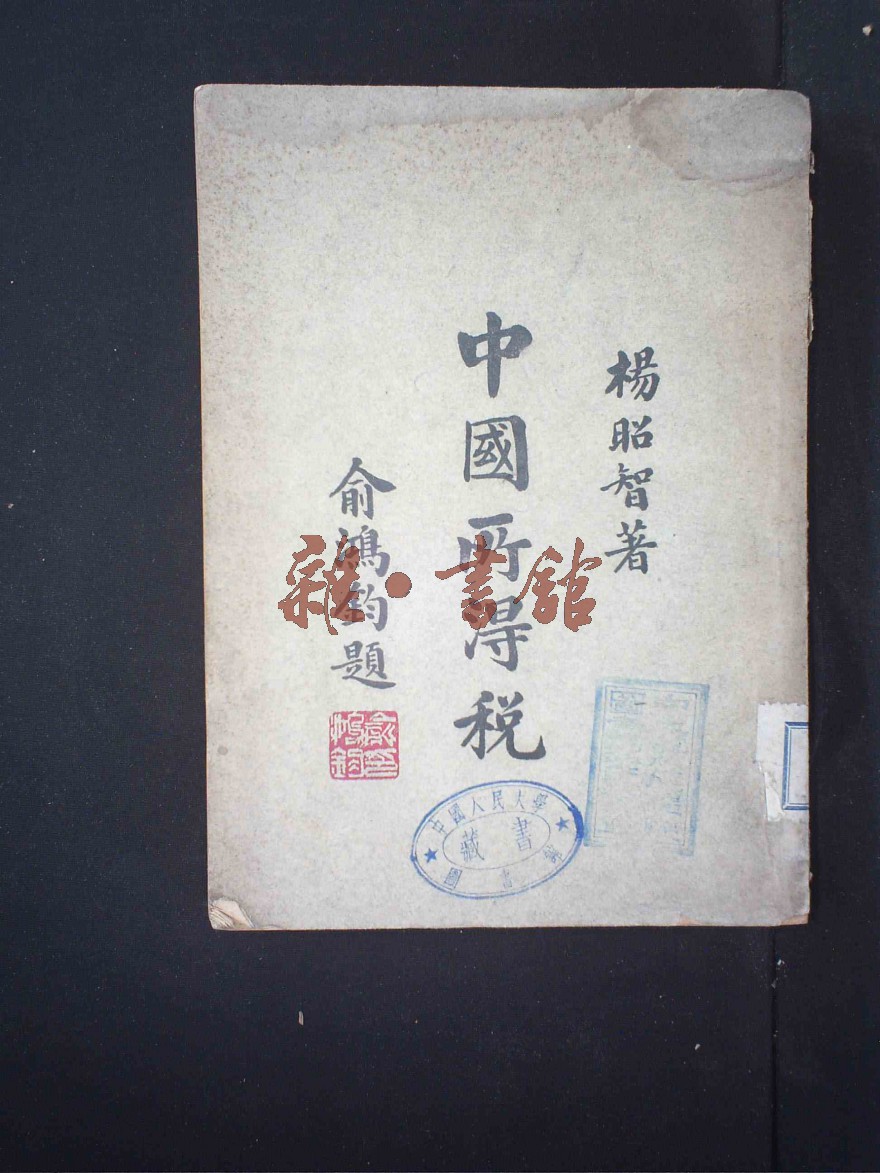 楊昭智著
中國所得税
俞鴻鈞題
俞鴻鈞印
雜·書館
中國人民大學
藏書
圖書館